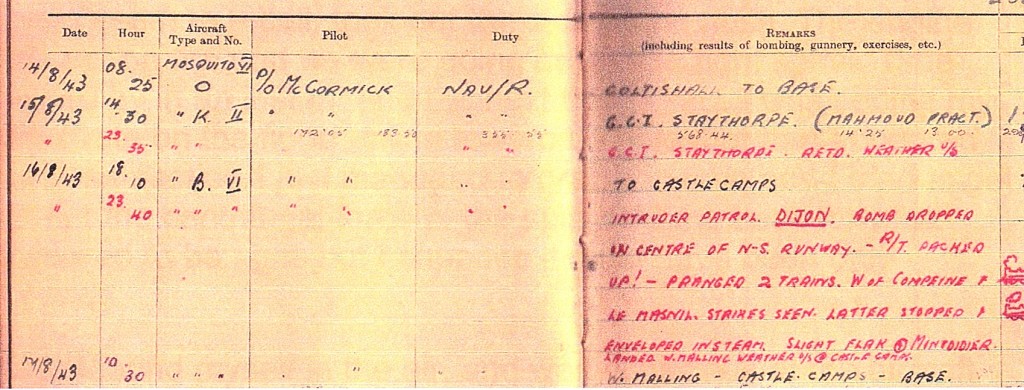 Date Hour Aircraft Type and No. Pilot Duty REMARKS (including results of bombing, gunnery, exercises, etc.)
14/8/43 08.25 MOSQUITO VI O P/O McCORMICK NAV/R. COLTISHALL TO BASE.
15/8/43 14.30 " K. II " " " " G.C.I. STAYTHORPE. (MAHMOUD PRACT.)
172.05 183.50 568.44 14.25 13.00
" 23.35 " " " " G.C.I. STAYTHORPE. RETD. WEATHER U/S
16/8/43 18.10 " B. VI " " " " TO CASTLE CAMPS
" 23.40 " " " " " " " INTRUDER PATROL. DIJON. BOMB DROPPED
IN CENTRE OF N-S. RUNWAY. - R/T. PACKED
UP! - PRANGED 2 TRAINS. W OF COMPEINE &
LE MASNIL. STRIKES SEEN. LATTER STOPPED &
ENVELOPED IN STEAM. SLIGHT FLAK @ MINTDIDIER.
LANDED W. MALLING WEATHER U/S @ CASTLE CAMPS.
17/8/43 10.30 " " " " " " " W. MALLING - CASTLE CAMPS - BASE.